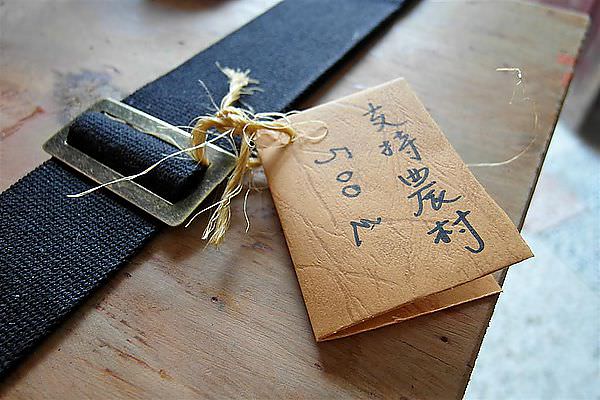 支持農村
500元